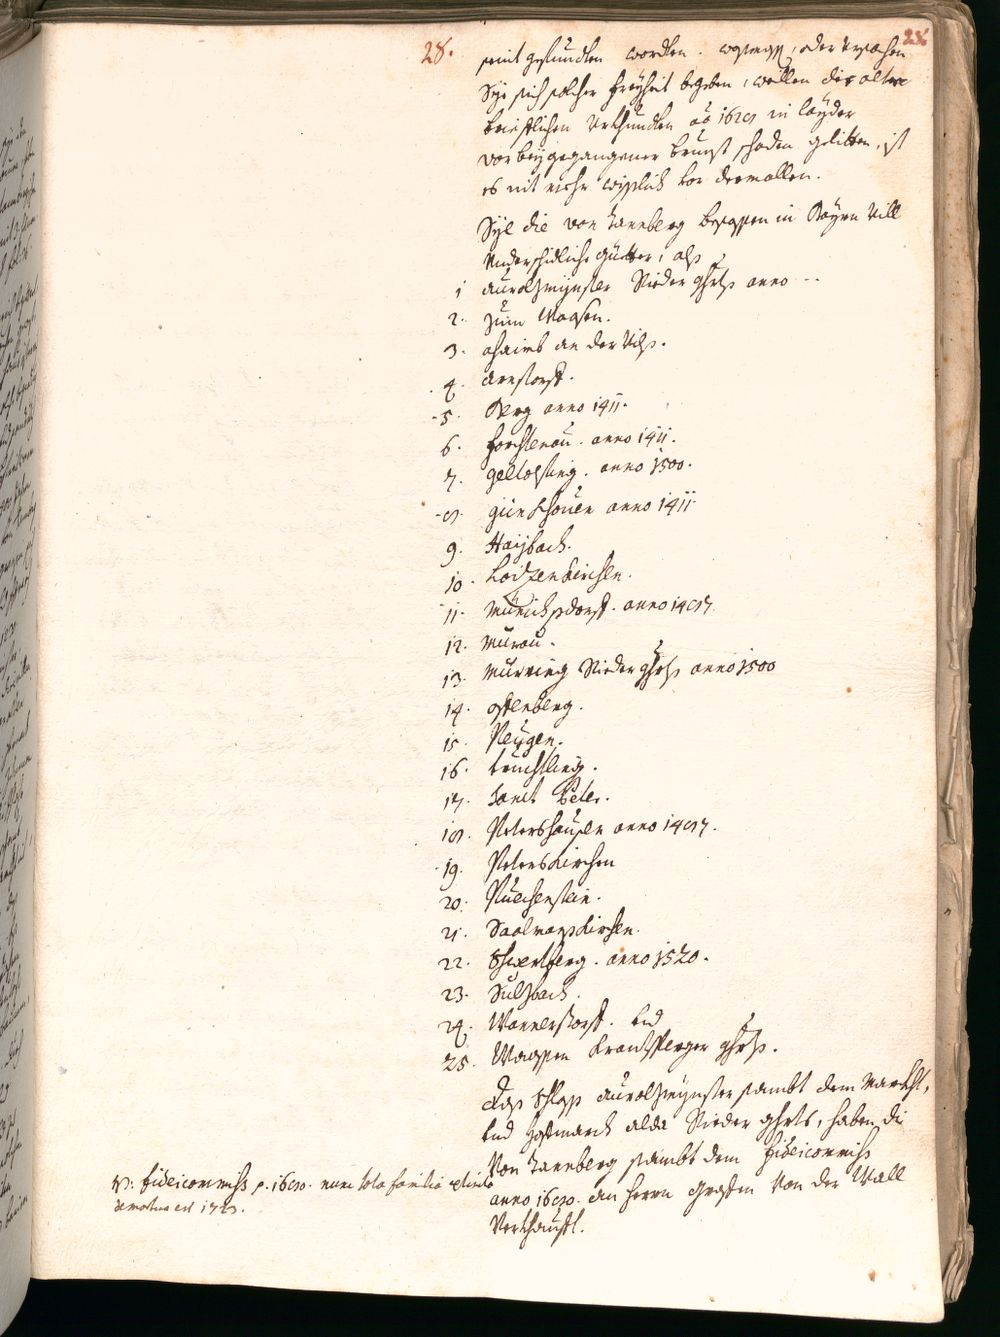 28.
28.
seint gefundten worden. oder Ursachen
Sye sich solcher freyheit begeben, weillen die alte
briefflichen Urkhundten ao in layder
vorbeygegangener brunst schaden gelitten, ist
es nit mehr wisslich vor dermallen.
Sye die von Tannberg besassen in Bayrn vill
underschidliche gütter, alss
1 aurolzmünster Rieder ghrts anno --
2. zum Maasen.
3. ahaimb an der Vilss.
4. arnstorff.
5. Berg anno 1411.
6. forchtenau. anno 1411.
7. geltolfing. anno 1500.
8. günkhouen anno 1411
9. Haybach.
10. Loizenkirchen.
11. Münichsdorff. anno 1487.
12. murau.
13. murring Rieder ghrts anno 1500
14. ostenberg.
15. Peügen.
16. truchtling.
17. Sanct Peter.
18. Petershausen anno 1487.
19. Peterskirchen
20. Puechenstein.
21. Saalmanskirchen.
22. Schwertberg. anno 1520.
23. Sulzbach.
24. Wannerstorff. und
25. Waassen Krantsperger ghrts.
Das Schloss aurolzmünster sambt dem Markht,
und hofmarch alda Rieder ghrts, haben die
Von Tannberg sambt dem fideicommiss
anno 16 an herrn graffen Von der Wall
Verkhaufft.
N: fideicommiss p. 16 nunc tota familia
est 17